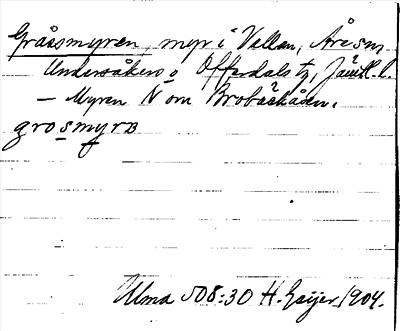 Gråssmyren, myr i Vallan, Åre sn
Undersåkers o Offerdals tg, Jämtl. l.
— Myren N om Brobäckåsen.
grosmyrɞ
Ulma 508:30 H. Geijer 1904.